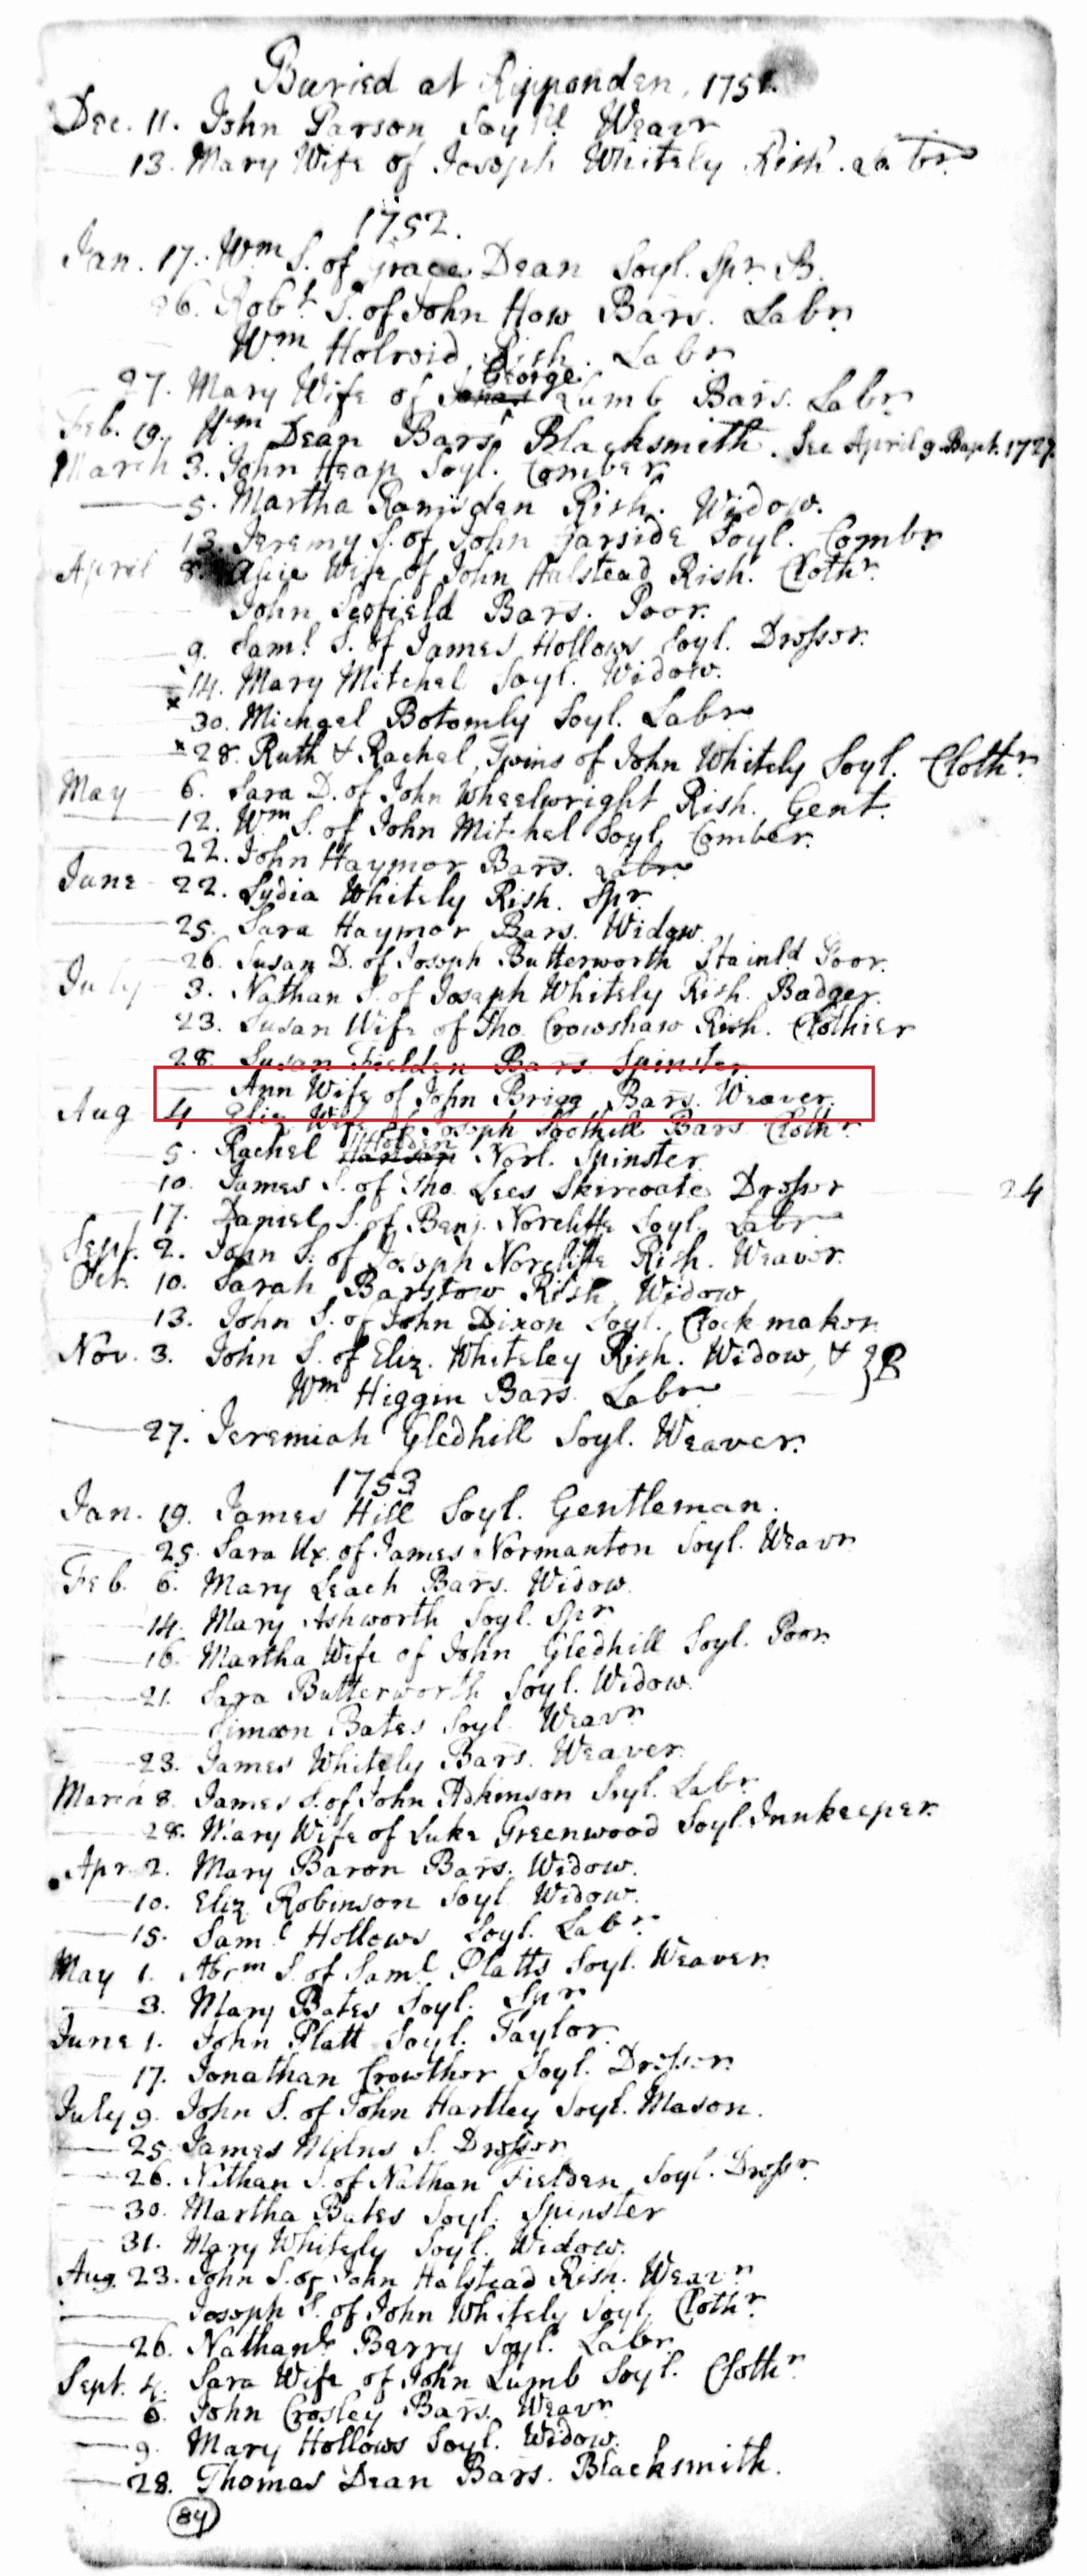 Buried at Ripponden, 1751.
Dec. 11. John Parson Soyld Weavr
13. Mary Wife of Joseph Whitely Rish. Labr.
1752.
Jan. 17. Wm S. of Grace Dean Soyl. Spr. B.
26. Robt. S. of John How Bars. Labr.
Wm Holroid Rish. Labr
27. Mary Wife of George Lumb Bars. Labr.
Feb. 19. Wm Dean Bars. Blacksmith. See April 9 Bapt. 1727.
March 3. John Heap Soyl. Comber.
5. Martha Ramsden Rish. Widow.
13. Jeremy S. of John Garside Soyl. Combr
April 8. Alice Wife of John Halstead Rish. Clothr.
John Scofield Bars. Poor.
9. Saml. S. of James Hollows Soyl. Dresser.
14. Mary Mitchel Soyl. Widow.
x 30. Michael Botomly Soyl. Labr
x 28. Ruth & Rachel, Twins of John Whitely Soyl. Clothr.
May 6. Sara D. of John Wheelwright Rish. Gent.
12. Wm S. of John Mitchel Soyl. Comber.
22. John Haymor Bars. Labr.
June 22. Lydia Whitely Rish. Spr.
25. Sara Haymor Bars. Widow.
26. Susan D. of Joseph Butterworth Stainld Poor.
July 3. Nathan S. of Joseph Whitely Rish. Badger.
23. Susan Wife of Tho. Crowshaw Rish. Clothier
28. Susan Fielden Bars. Spinster
Ann Wife of John Brigg Bars. Weaver.
Aug 4 Eliz. Wife of Joseph Foothill Bars. Clothr.
5. Rachel Holden Norl. Spinster.
10. James S. of Tho. Lees Skircoate Dressr 24
17. Daniel S. of Benj. Norcliffe Soyl. Labr
Sept. 2. John S. of Joseph Norcliffe Rish. Weaver.
Oct. 10. Sarah Barstow Rish. Widow
13. John S. of John Dixon Soyl. Clockmaker
Nov. 3. John S. of Eliz. Whiteley Rish. Widow, & } B
Wm Higgin Bars. Labr
27. Jeremiah Gledhill Soyl. Weaver.
1753
Jan. 19. James Hill Soyl. Gentleman.
25. Sara Ux. of James Normanton Soyl. Weavr
Feb. 6. Mary Leach Bars. Widow.
14. Mary Ashworth Soyl. Spr
16. Martha Wife of John Gledhill Soyl. Poor.
21. Sara Butterworth Soyl. Widow.
Simeon Bates Soyl. Weavr
23. James Whitely Bars. Weaver.
March 8. James S. of John Adkinson Soyl. Labr.
28. Mary Wife of Luke Greenwood Soyl. Innkeeper.
Apr. 2. Mary Baron Bars. Widow.
10. Eliz. Robinson Soyl. Widow.
15. Saml Hollows Soyl. Labr.
May 1. Abrm S. of Saml Platts Soyl. Weaver.
3. Mary Bates Soyl. Spr
June 1. John Platt Soyl. Taylor.
17. Jonathan Crowther Soyl. Dresser.
July 9. John S. of John Hartley Soyl. Mason.
25. James Milns S. Dresser
26. Nathan S. of Nathan Fielden Soyl. Dressr.
30. Martha Bates Soyl. Spinster
31. Mary Whitely Soyl. Widow.
Aug. 23. John S. of John Halstead Rish. Weavr
Joseph S. of John Whitely Soyl. Clothr.
26. Nathanl. Berry Soyl. Labr.
Sept. 4. Sara Wife of John Lumb Soyl. Clothr
6. John Crosley Bars. Weavr
9. Mary Hollows Soyl. Widow.
28. Thomas Dean Bars. Blacksmith.
84